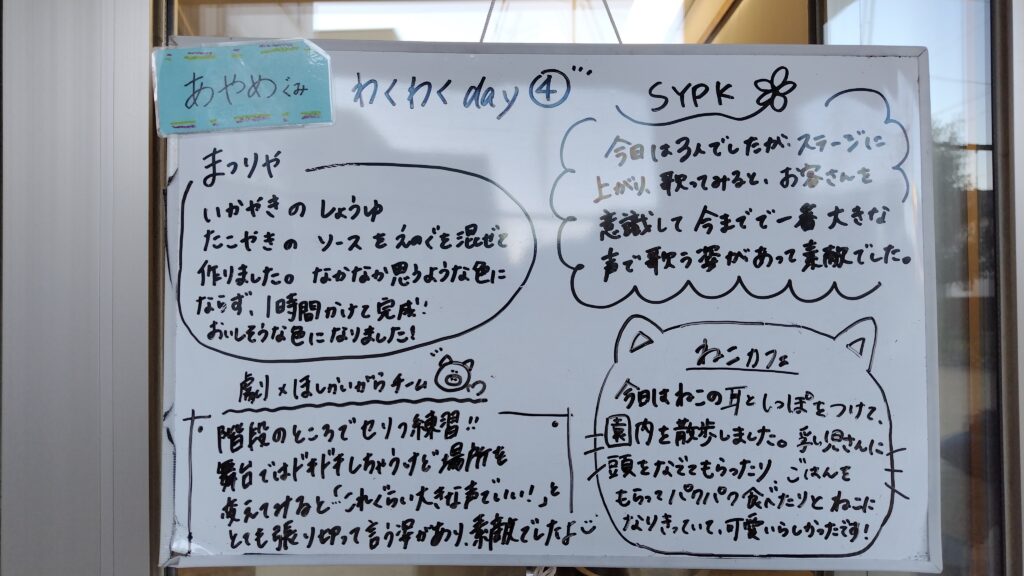 あやめぐみ
わくわくday④
まつりや
いかやきの しょうゆ
たこやきの ソース をえのぐを混ぜて
作りました。なかなか思うような色に
ならず、1時間かけて完成!
おいしそうな色になりました!
SYPK
今日は3人でしたが、ステージに
上がり、歌ってみると、お客さんを
意識して今までで一番大きな
声で歌う姿があって素敵でした。
劇×ほしかいがらチーム
階段のところでセリフ練習!!
舞台ではドキドキしちゃうけど場所を
変えてみると「これぐらい大きな声でいい!」と
とても張り切って言う姿があり、素敵でしたよ
ねこカフェ
今日はねこの耳としっぽをつけて、
園内を散歩しました。乳児さんに
頭をなでてもらったり、ごはんを
もらってパクパク食べたりとねこに
なりきっていて、可愛いらしかったです!